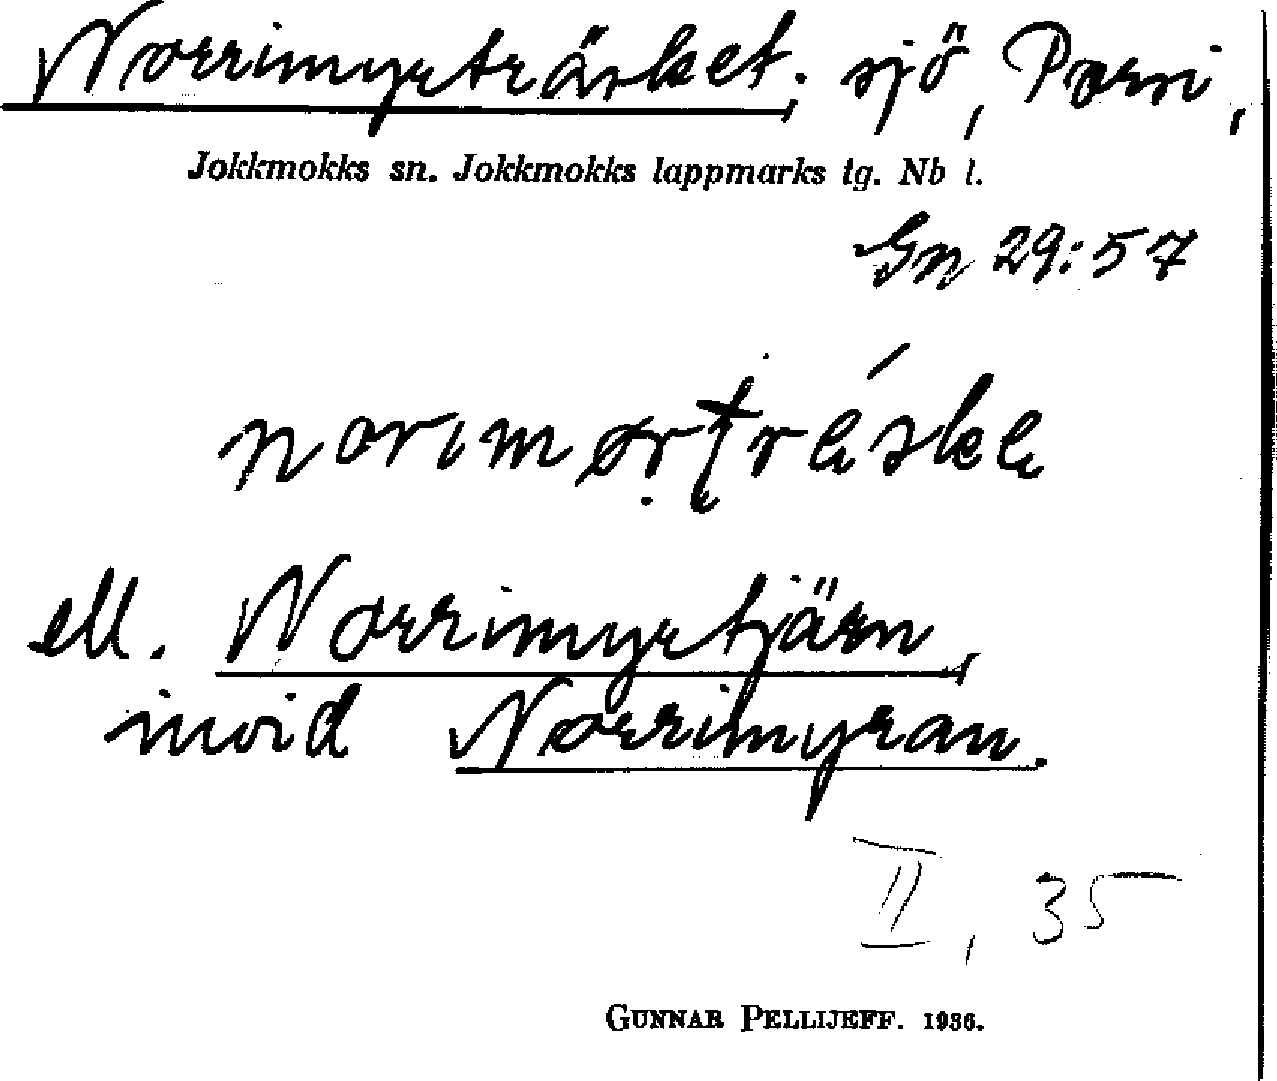 Norrimyrträsket, sjö, Porsi,
Jokkmokks sn. Jokkmokks lappmarks tg. Nb l.
Gn 29:57
ell. Norrimyrtjärn,
invid Norrimyran.
II, 35
GUNNAR PELLIJEFF. 1936.